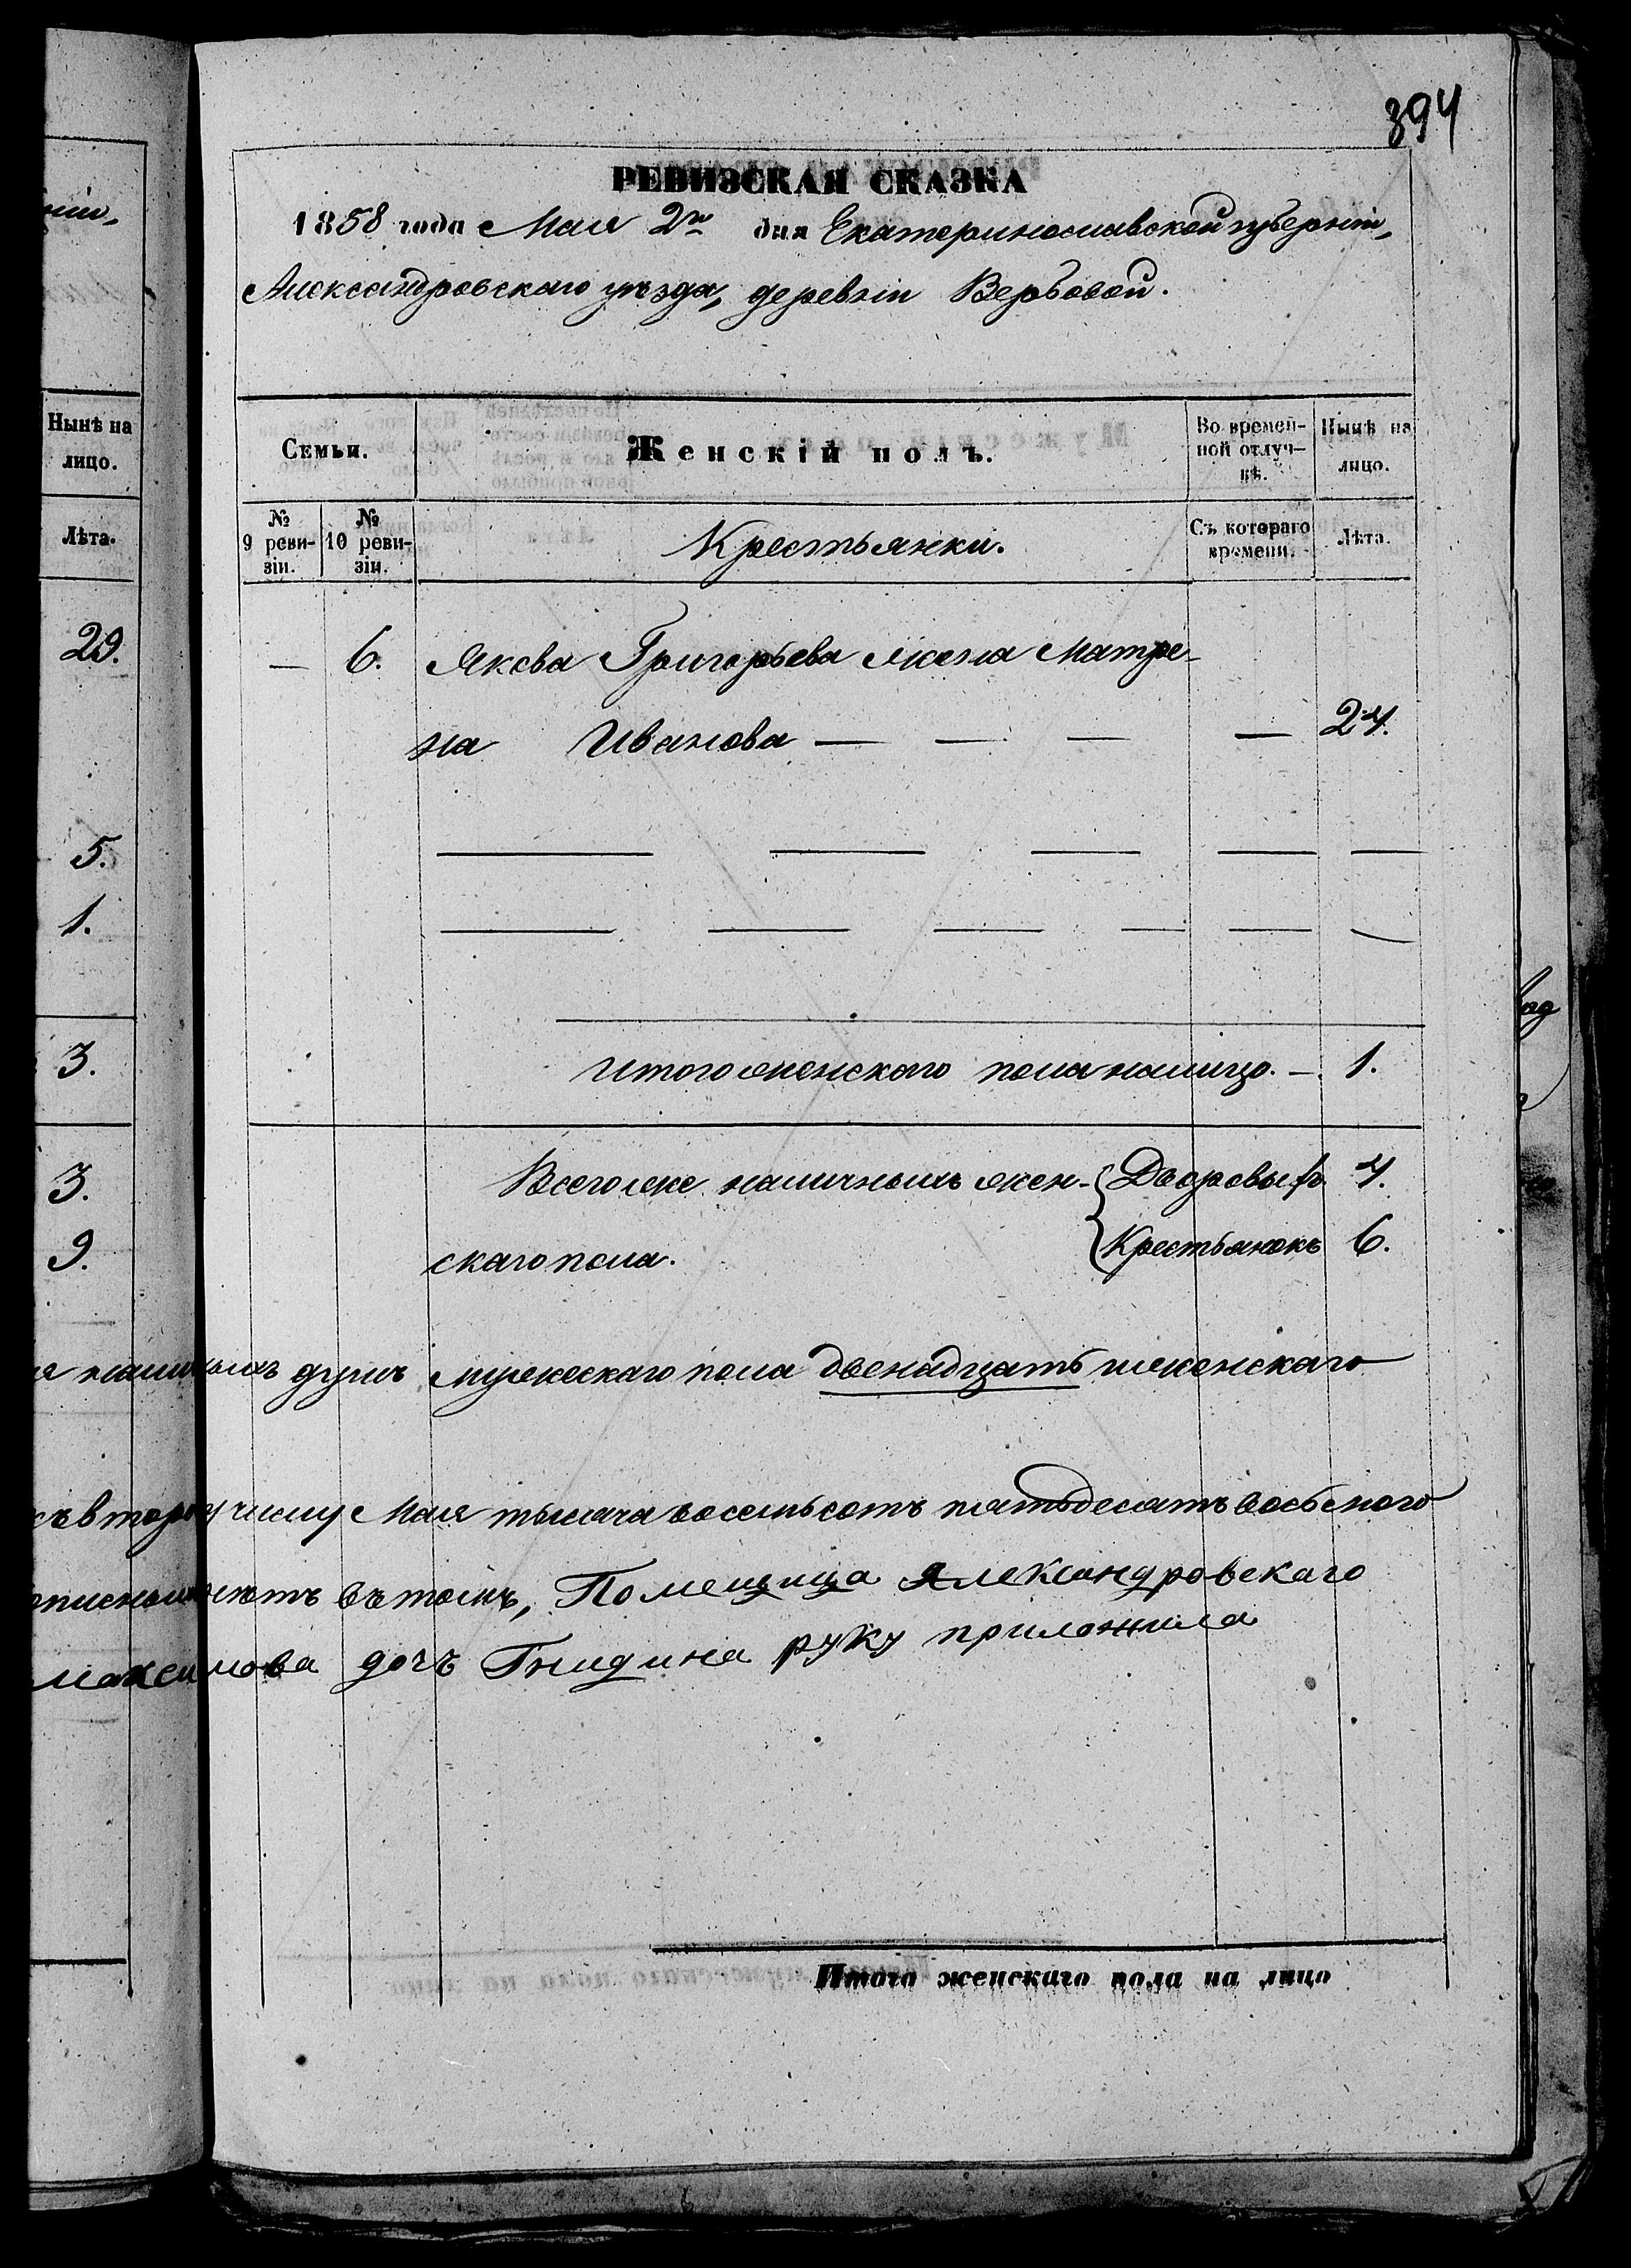 394
РЕВИЗСКАЯ СКАЗКА
1858 года Мая 2го дня Екатеринославской губерніи,
Александровскаго уѣзда, деревни Вербовой.
Нынѣ на лицо.
Лѣта.
29.
5.
1.
3.
3.
9.
Семьи.
Женскій полъ.
Во времен-
ной отлуч-
кѣ.
Нынѣ на
лицо.
№ 9 реви-
зіи.
№ 10 реви-
зіи.
Крестьянки.
Съ котораго
времени.
Лѣта.
— 6. Якова Григорьева жена Матре-
на Иванова — — — — 24.
Итого женскаго пола налицо. — 1.
Всего же наличныхъ жен- Дворовыхъ 4.
скаго пола. Крестьянокъ 6.
наличныхъ душъ мужескаго пола двенадцать и женскаго
къ второму числу Мая тысяча восемьсотъ пятьдесятъ восьмого
въ томъ, Помещица Александровскаго
Максимова дочь Гнидина руку приложила
Итого женскаго пола на лицо